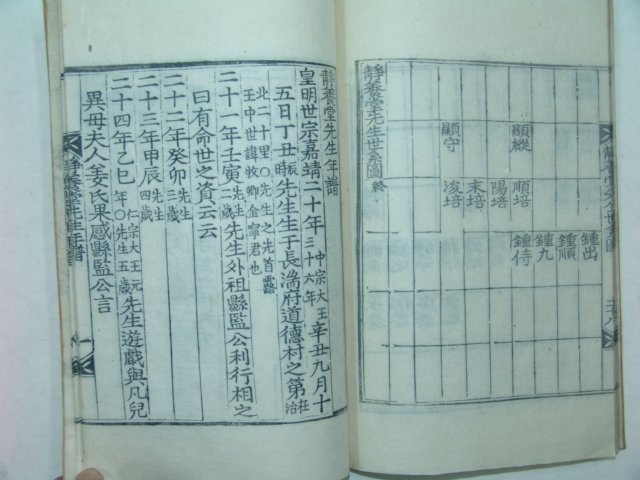 靜養堂先生世系圖 終
顯縱
顯守
順培
陽培
末培
浚培
鍾出
鍾順
鍾九
鍾侍
靜養堂先生年譜
皇明世宗嘉靖二十年 中宗大王三十六年 辛丑九月十
五日丁丑 辰時 先生生于長湍府道德村之第 在治
北二十里○先生之先首露
王中世諱牧卿金寧君也
二十一年壬寅 先生二歲 先生外祖縣監公利行相之
曰有命世之資云云
二十二年癸卯 先生三歲
二十三年甲辰 先生四歲
二十四年乙巳 仁宗大王元年○先生五歲 先生遊戲與凡兒
異母夫人姜氏果感縣監公言